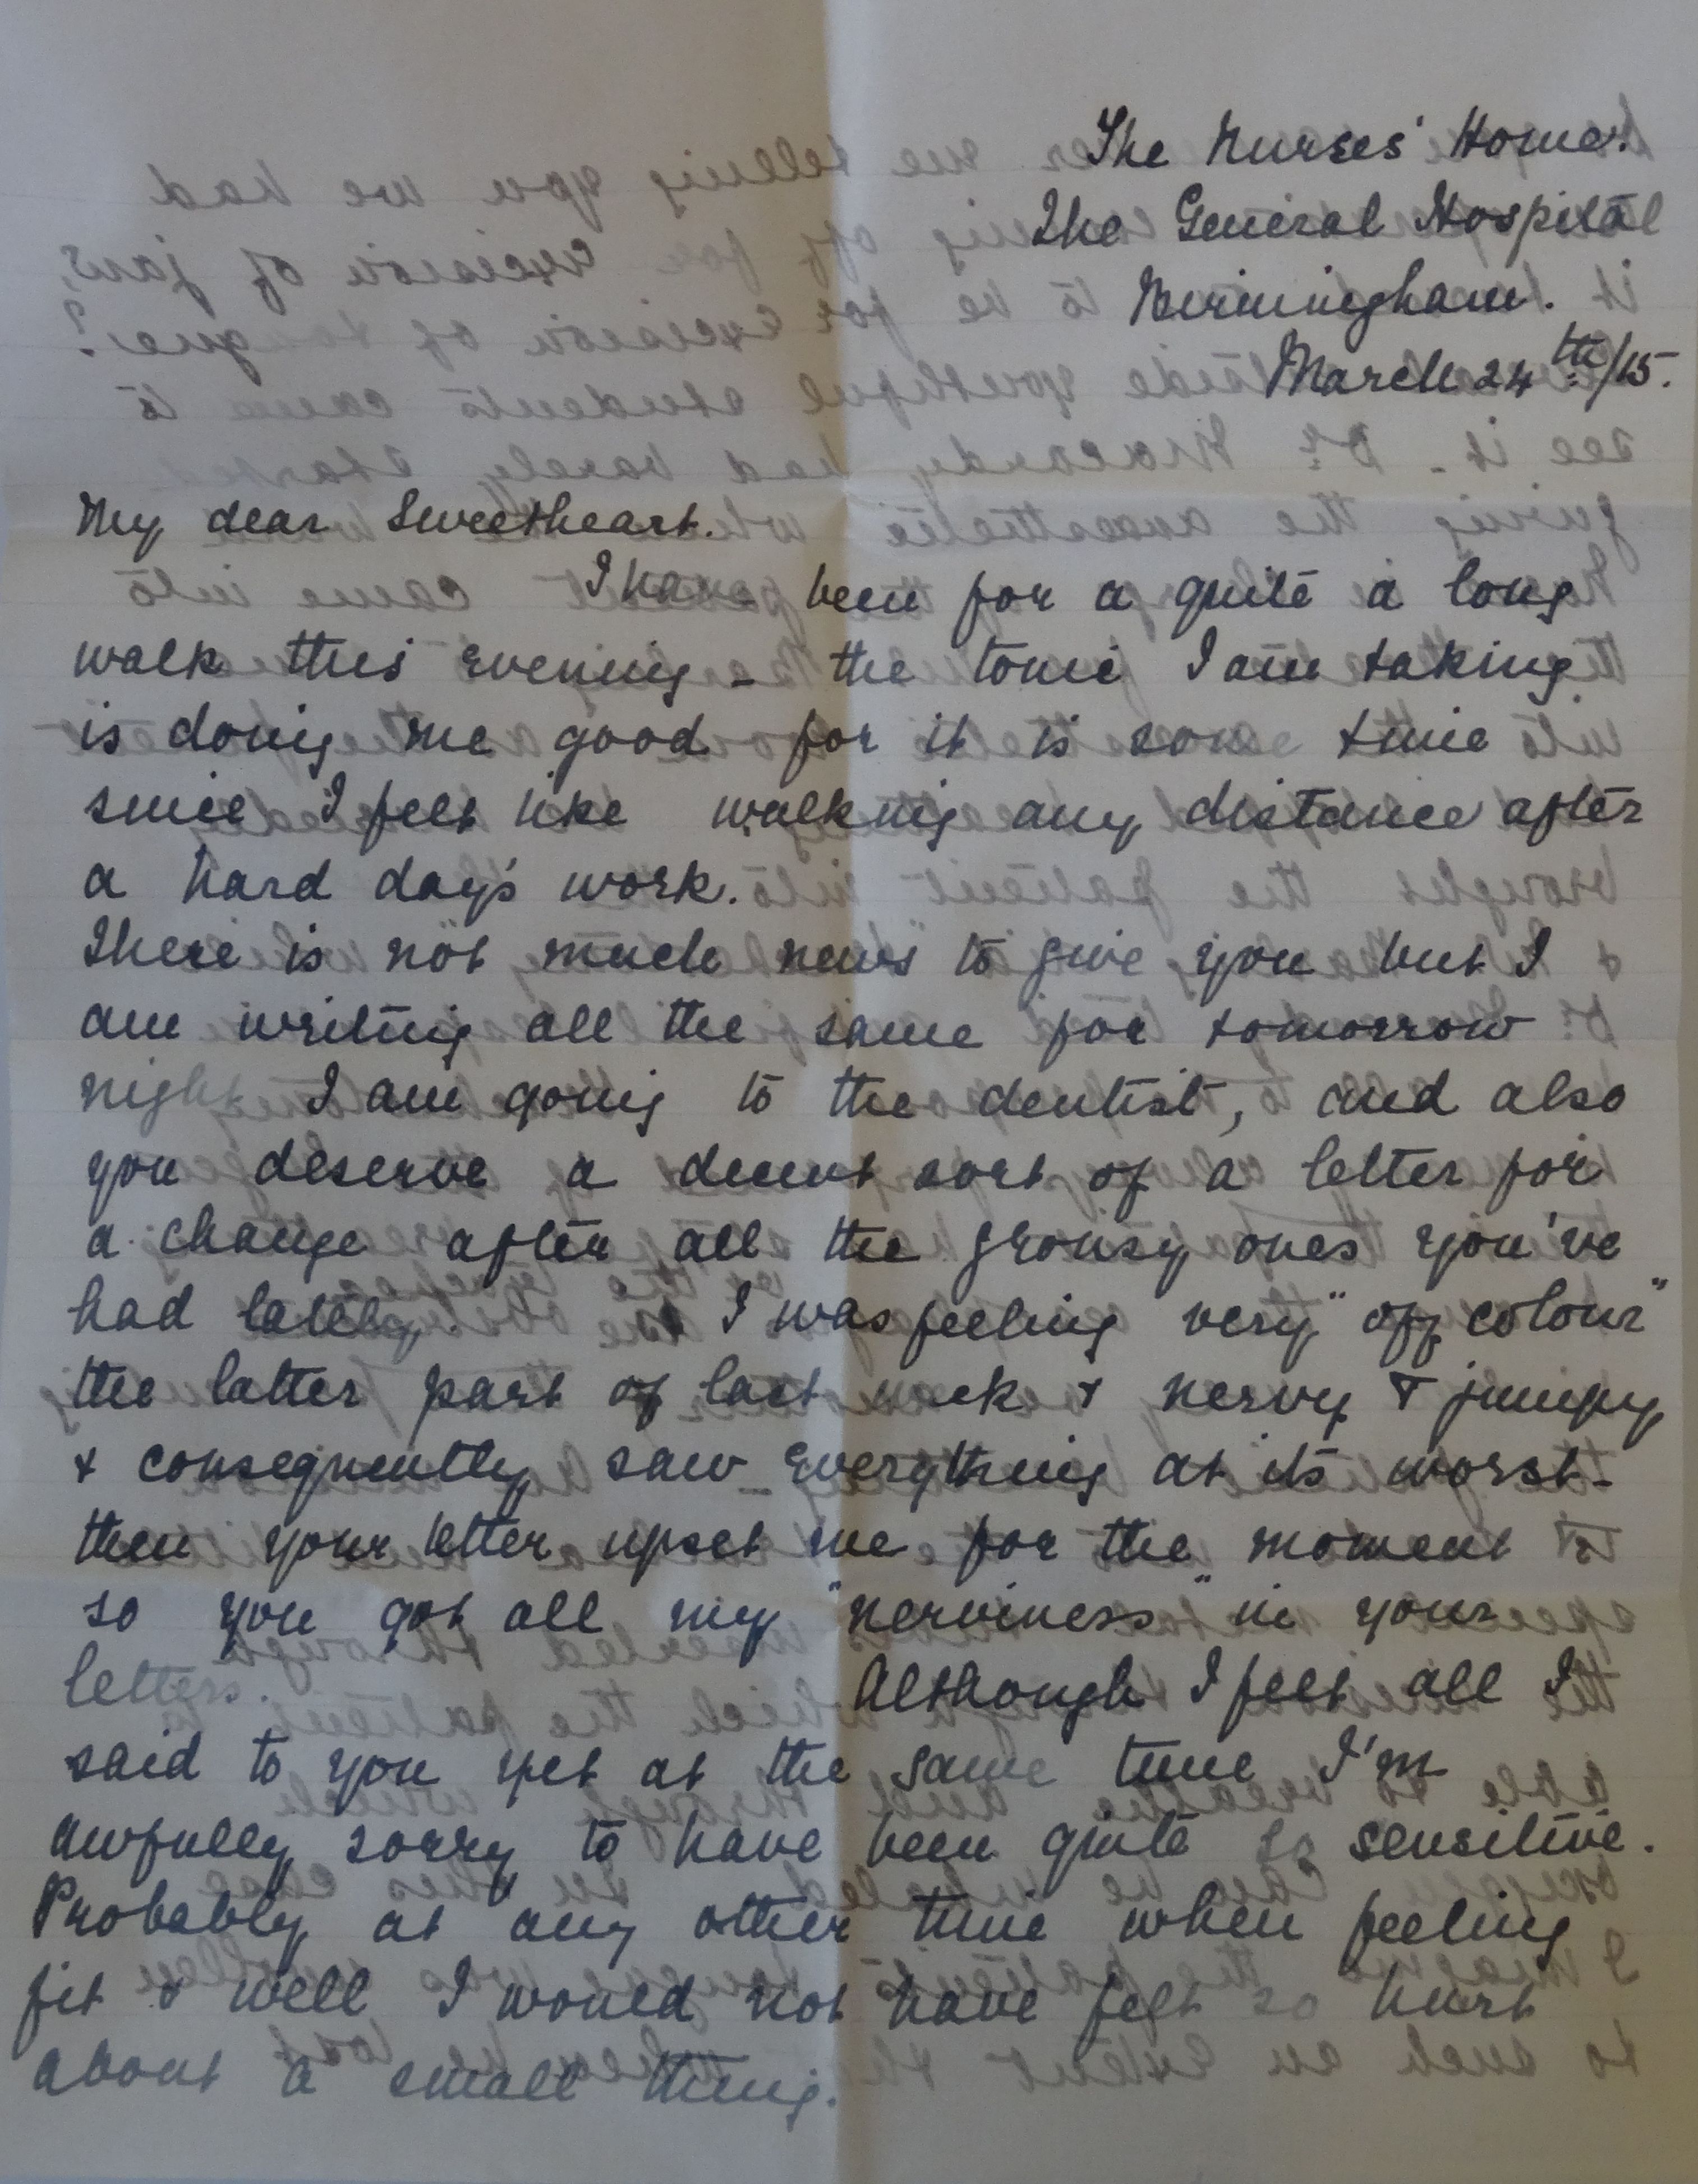 The Nurses' Home.
The General Hospital
Birmingham.
March 24th/15.
My dear Sweetheart.
I have been for a quite a long
walk this evening - the tonic I am taking
is doing me good for it is some time
since I felt like walking any distance after
a hard day's work.
There is not much news to give you but I
am writing all the same for tomorrow
night I am going to the dentist, and also
you deserve a decent sort of a letter for
a change after all the grousy ones you've
had lately. I was feeling very "off colour"
the latter part of last week & nervy & jumpy
& consequently saw everything at its worst -
then your letter upset me for the moment &
so you got all my "nerviness" in your
letters. Although I felt all I
said to you yet at the same time I'm
awfully sorry to have been quite so sensitive.
Probably at any other time when feeling
fit & well I would not have felt so hurt
about a small thing.